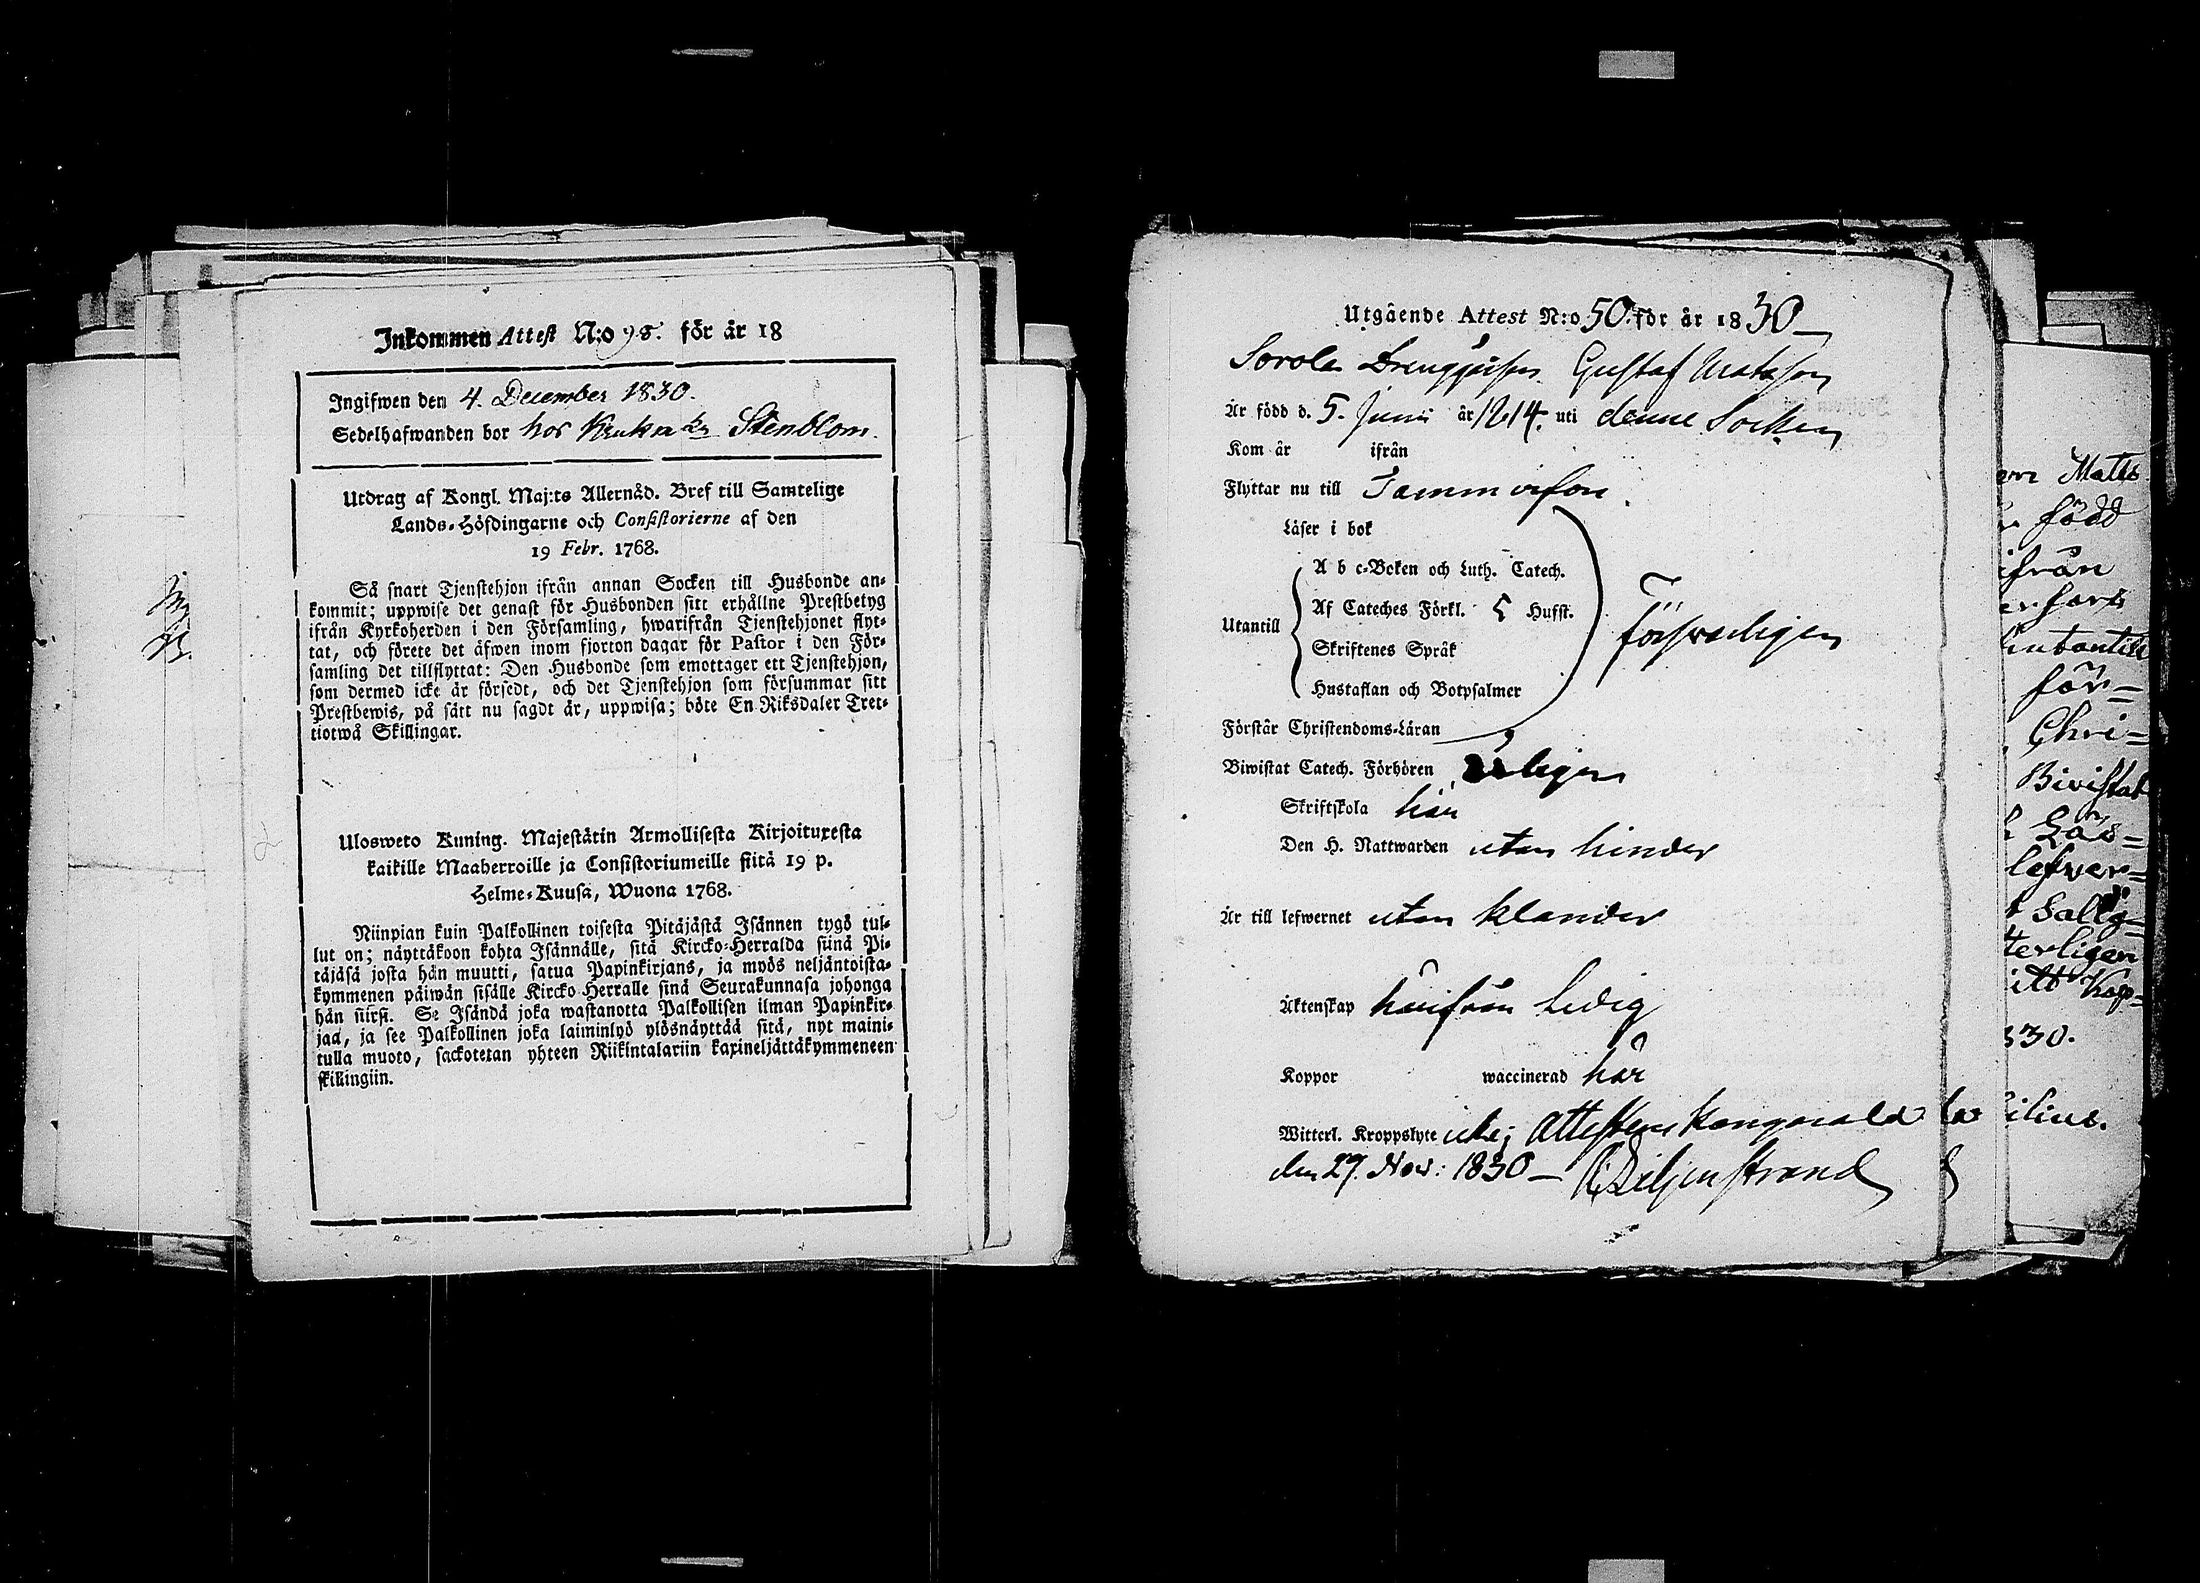 Inkommen Attest N:o 98. för år 18
Ingifwen den 4. December 1830.
Sedelhafwanden bor hos Krukmak: Stenblom.
Utdrag af Kongl. Maj:ts Allernåd. Bref till Samtelige
Lands-Höfdingarne och Consistorierne af den
19 Febr. 1768.
Så snart Tjenstehjon ifrån annan Socken till Husbonde an-
kommit; uppwise det genast för Husbonden sitt erhållne Prestbetyg
ifrån Kyrkoherden i den Församling, hwarifrån Tjenstehjonet flyt-
tat, och förete det äfwen inom fjorton dagar för Pastor i den För-
samling det tillflyttat: Den Husbonde som emottager ett Tjenstehjon,
som dermed icke är försedt, och det Tjenstehjon som försummar sitt
Prestbewis, på sätt nu sagdt är, uppwisa; böte En Riksdaler Tret-
tiotwå Skillingar.
Ulosweto Kuning. Majestätin Armollisesta Kirjoituxesta
kaikille Maaherroille ja Consistoriumeille siitä 19 p.
Helme-Kuusa, Wuona 1768.
Niinpian kuin Palkollinen toisesta Pitäjästä Isännen tygö tul-
lut on; näyttäkoon kohta Isännälle, sitä Kircko-Herralda siinä Pi-
täjäsä josta hän muutti, satua Papinkirjans, ja myös neljäntoista-
kymmenen päiwän sisälle Kircko Herralle sinä Seurakunnasa johonga
hän siirsi. Se Isändä joka wastanotta Palkollisen ilman Papinkir-
jaa, ja see Palkollinen joka laiminlyö ylösnäyttää sitä, nyt maini-
tulla muoto, sackotetan yhteen Riikintalariin kaxineljättäkymmeneen
skillingiin.
Utgående Attest N:o 50. för år 1830
Sorola Drenggåsen Gustaf Matsson
Är född d. 5. Junii år 1814. uti denne Socken
Kom år ifrån
Flyttar nu till Tammerfors.
Läser i bok
A b c-Boken och Luth. Catech.
Af Cateches Förkl. 5 Hufst.
Utantill
Skriftenes Språk
försvarligen
Hustaflan och Botpsalmer
Förstår Christendoms-Läran
Biwistat Catech. Förhören årligen
Skriftskola här
Den H. Nattwarden utan hinder
Är till lefwernet utan klander
Äktenskap härifrån ledig
Koppor waccinerad har
Witterl. Kroppslyte icke; Attesterar Kangasala
den 27. Nov: 1830 Liljenstrand
Matts
född
ifrån
utantill
för-
Chri-
Bivistat
Läs-
lefver-
Salig-
Kop-
830.